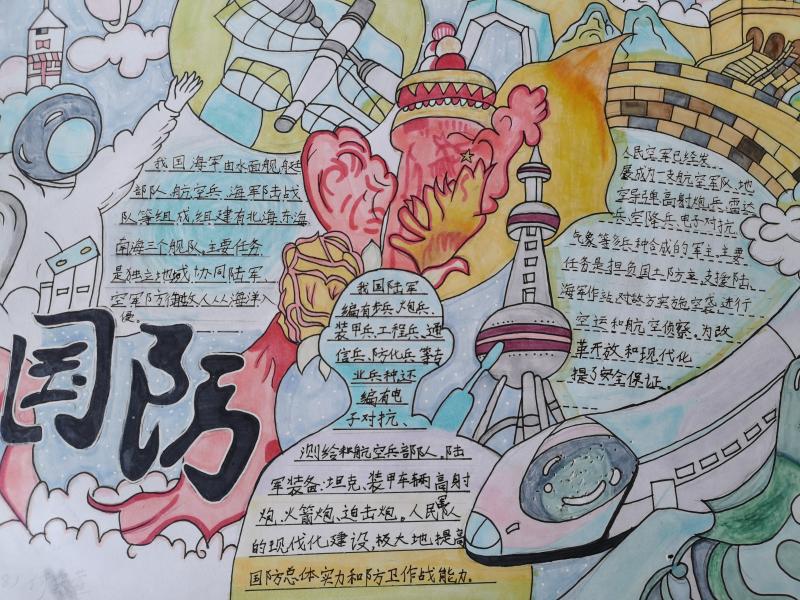 国防
我国海军由水面舰艇
部队、航空兵、海军陆战
队等组成,组建有北海、东海、
南海三个舰队,主要任务
是独立地或协同陆军、
空军防御敌人从海洋入
侵。
我国陆军
编有步兵、炮兵、
装甲兵、工程兵、通
信兵、防化兵等专
业兵种还
编有电
子对抗、
测绘和航空兵部队、陆
军装备:坦克、装甲车辆高射
炮、火箭炮、迫击炮。人民军队
的现代化建设,极大地提高
国防总体实力和防卫作战能力.
人民空军已经发
展成为一支航空军队、地
空导弹高射炮兵、雷达
兵、空降兵、电子对抗
气象等多兵种合成的军主、主要
任务是担负国土防空、支援陆、
海军作战、对敌方实施空袭、进行
空运和航空侦察。为改
革开放和现代化
提了安全保证.